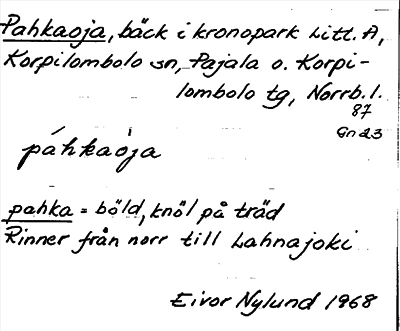 Pahkaoja, bäck i kronopark Litt. A,
Korpilombolo sn, Pajala o. Korpi-
lombolo tg, Norrb. l.
87
Gn 23
páhkaòja
pahka = böld, knöl på träd
Rinner från norr till Lahnajoki
Eivor Nylund 1968